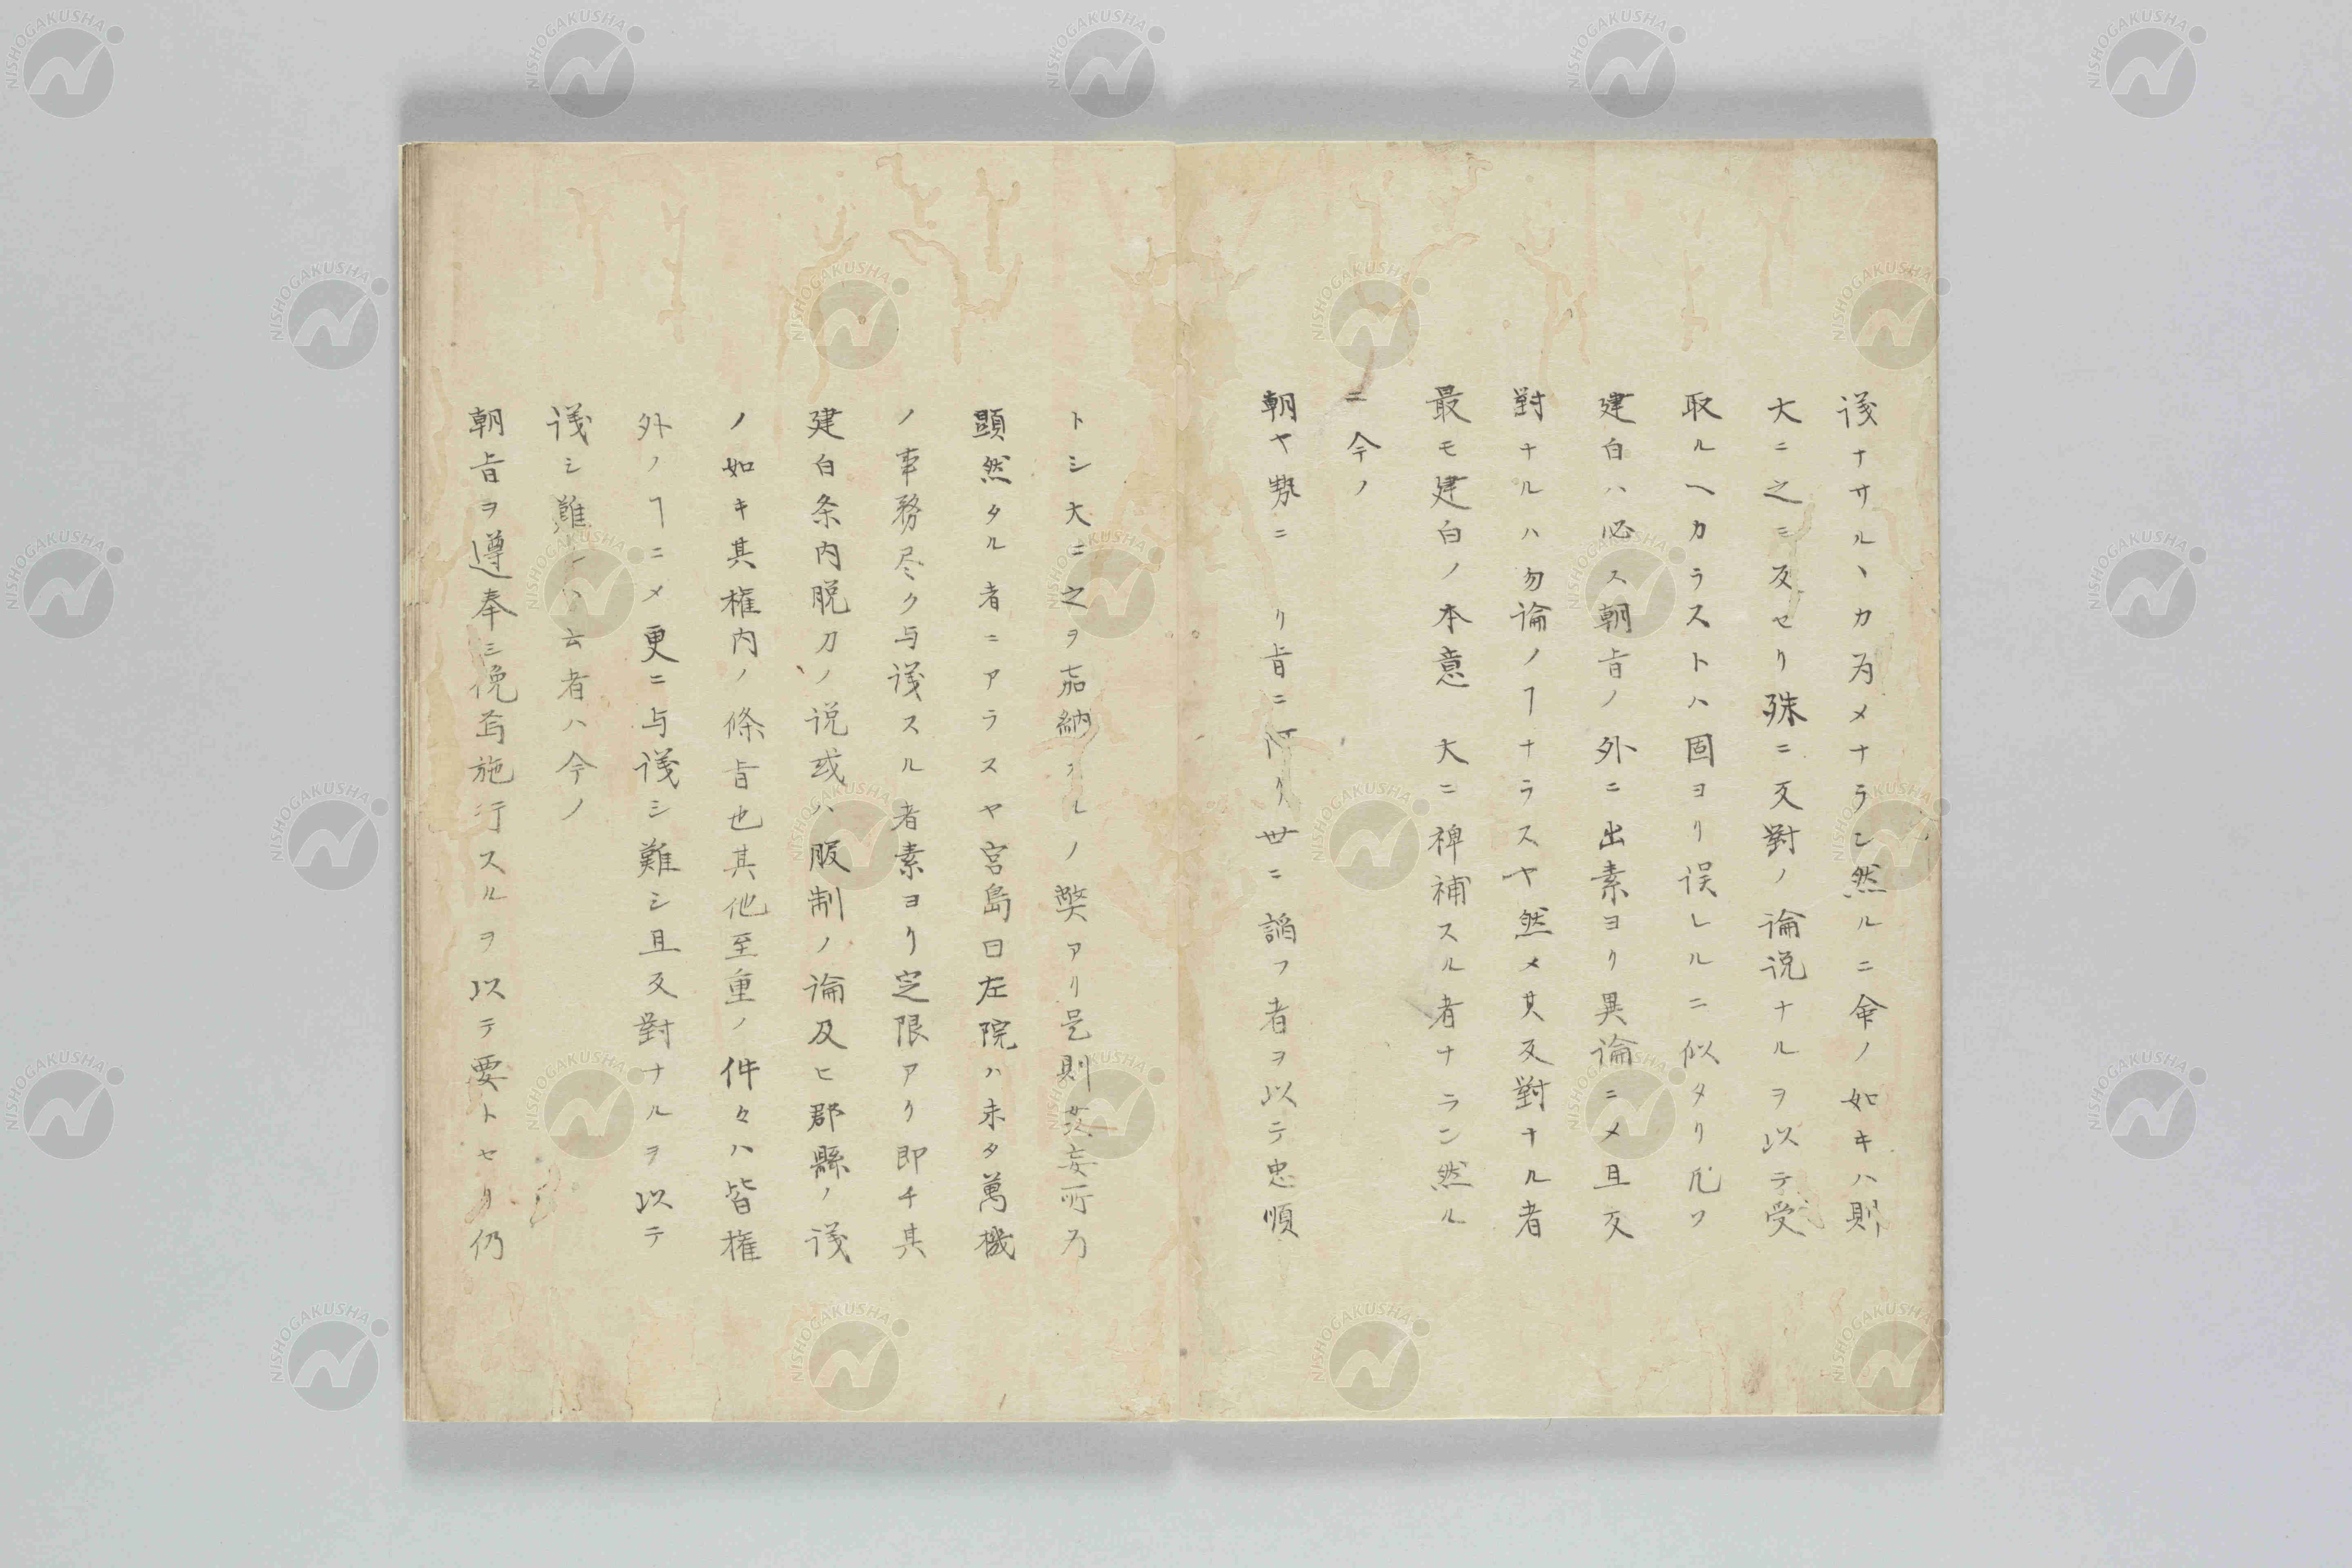 議ナサルヽカ為メナラン然ルニ命ノ如キハ則
大ニ之ニ反セリ殊ニ反對ノ論説ナルヲ以テ受
取ルヘカラストハ固ヨリ誤レルニ似タリ凡ソ
建白ハ必ス朝旨ノ外ニ出素ヨリ異論ニメ且反
對ナルハ勿論ノヿナラスヤ然メ其反對ナル者
最モ建白ノ本意 大ニ裨補スル者ナラン然ル
ニ今ノ
朝ヤ勢ニ リ旨ニ阿リ世ニ諂フ者ヲ以テ忠順
トシ大ニ之ヲ嘉納 ルノ弊アリ是則 妄所乃
顕然タル者ニアラスヤ宮島曰左院ハ未タ萬機
ノ事務尽ク与議スル者素ヨリ定限アリ即チ其
建白条内脱刀ノ説或ハ服制ノ論及ヒ郡縣ノ議
ノ如キ其権内ノ條旨也其他至重ノ件々ハ皆権
外ノヿニメ更ニ与議シ難シ且反對ナルヲ以テ
議シ難 ハ云者ハ今ノ
朝旨ヲ遵奉ニ 施行スルヲ以テ要トセリ仍
NISHOGAKUSHA